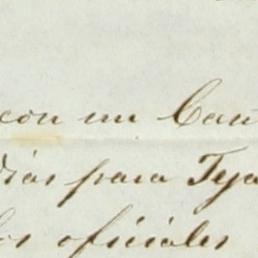 con un Cau
dias para Teja
los oficiales